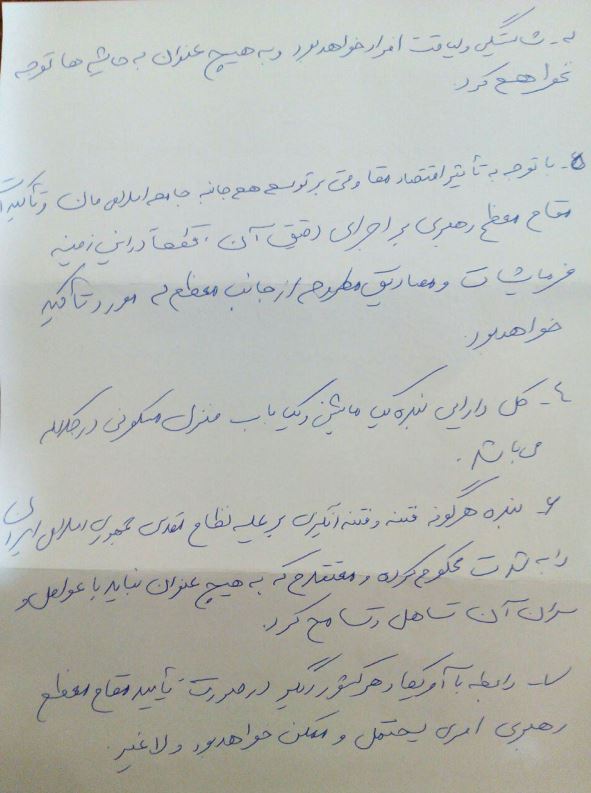 له - شایستگی و لیاقت افراد خواهد بود و به هیچ عنوان به حاشیه ها توجه
نخواهم کرد.
۵- با توجه به تأثیر اقتصاد مقاومتی بر توسعه همه جانبه جامعه اسلامی مان و تأکیدات
مقام معظم رهبری بر اجرای دقیق آن، قطعاً در این زمینه
فرمایشات و مصادیق مطروحه از جانب معظم له مورد تأکید
خواهد بود.
۴- کل دارایی بنده یک ماشین و یک باب منزل مسکونی در کلاله
می باشد.
۶- بنده هرگونه فتنه و فتنه انگیزی بر علیه نظام مقدس جمهوری اسلامی ایران
را به شدت محکوم کرده و معتقدم که به هیچ عنوان نباید با عوامل و
سران آن تساهل و تسامح کرد.
۷- رابطه با آمریکا و هر کشور دیگر در صورت تأیید مقام معظم
رهبری امری محتمل و ممکن خواهد بود و لا غیر.